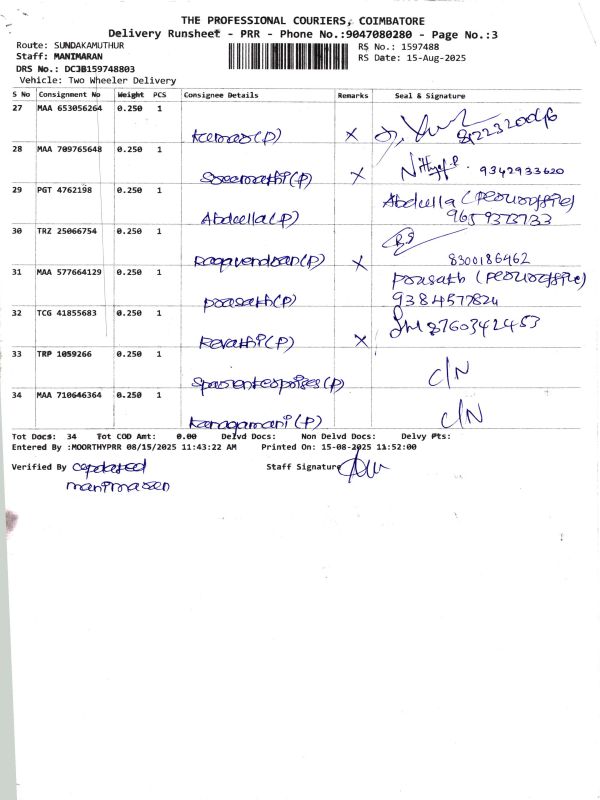 THE PROFESSIONAL COURIERS, COIMBATORE
Delivery Runsheet - PRR - Phone No.:9047080280 - Page No.:3
Route: SUNDAKAMUTHUR
RS No.: 1597488
Staff: MANIMARAN
RS Date: 15-Aug-2025
DRS No.: DCJB159748803
Vehicle: Two Wheeler Delivery
S No Consignment No Weight PCS Consignee Details Remarks Seal & Signature
27 MAA 653056264 0.250 1
Kumar(P) X
28 MAA 709765648 0.250 1
Sreemathi(P) X 9342933620
29 PGT 4762198 0.250 1
Abdulla
Abdulla(P) 9659373733
30 TRZ 25066754 0.250 1
Ragavendran(P) X 8300186462
31 MAA 577664129 0.250 1 Prasath
Prasath(P) 9384577824
32 TCG 41855683 0.250 1 8760342453
Revathi(P) X
33 TRP 1059266 0.250 1
Sparenterprises(P) C/N
34 MAA 710646364 0.250 1
Kanagamani(P) C/N
Tot Docs: 34 Tot COD Amt: 0.00 Delvd Docs: Non Delvd Docs: Delvy Pts:
Entered By :MOORTHYPRR 08/15/2025 11:43:22 AM Printed On: 15-08-2025 11:52:00
Verified By updated Staff Signature
manimaran